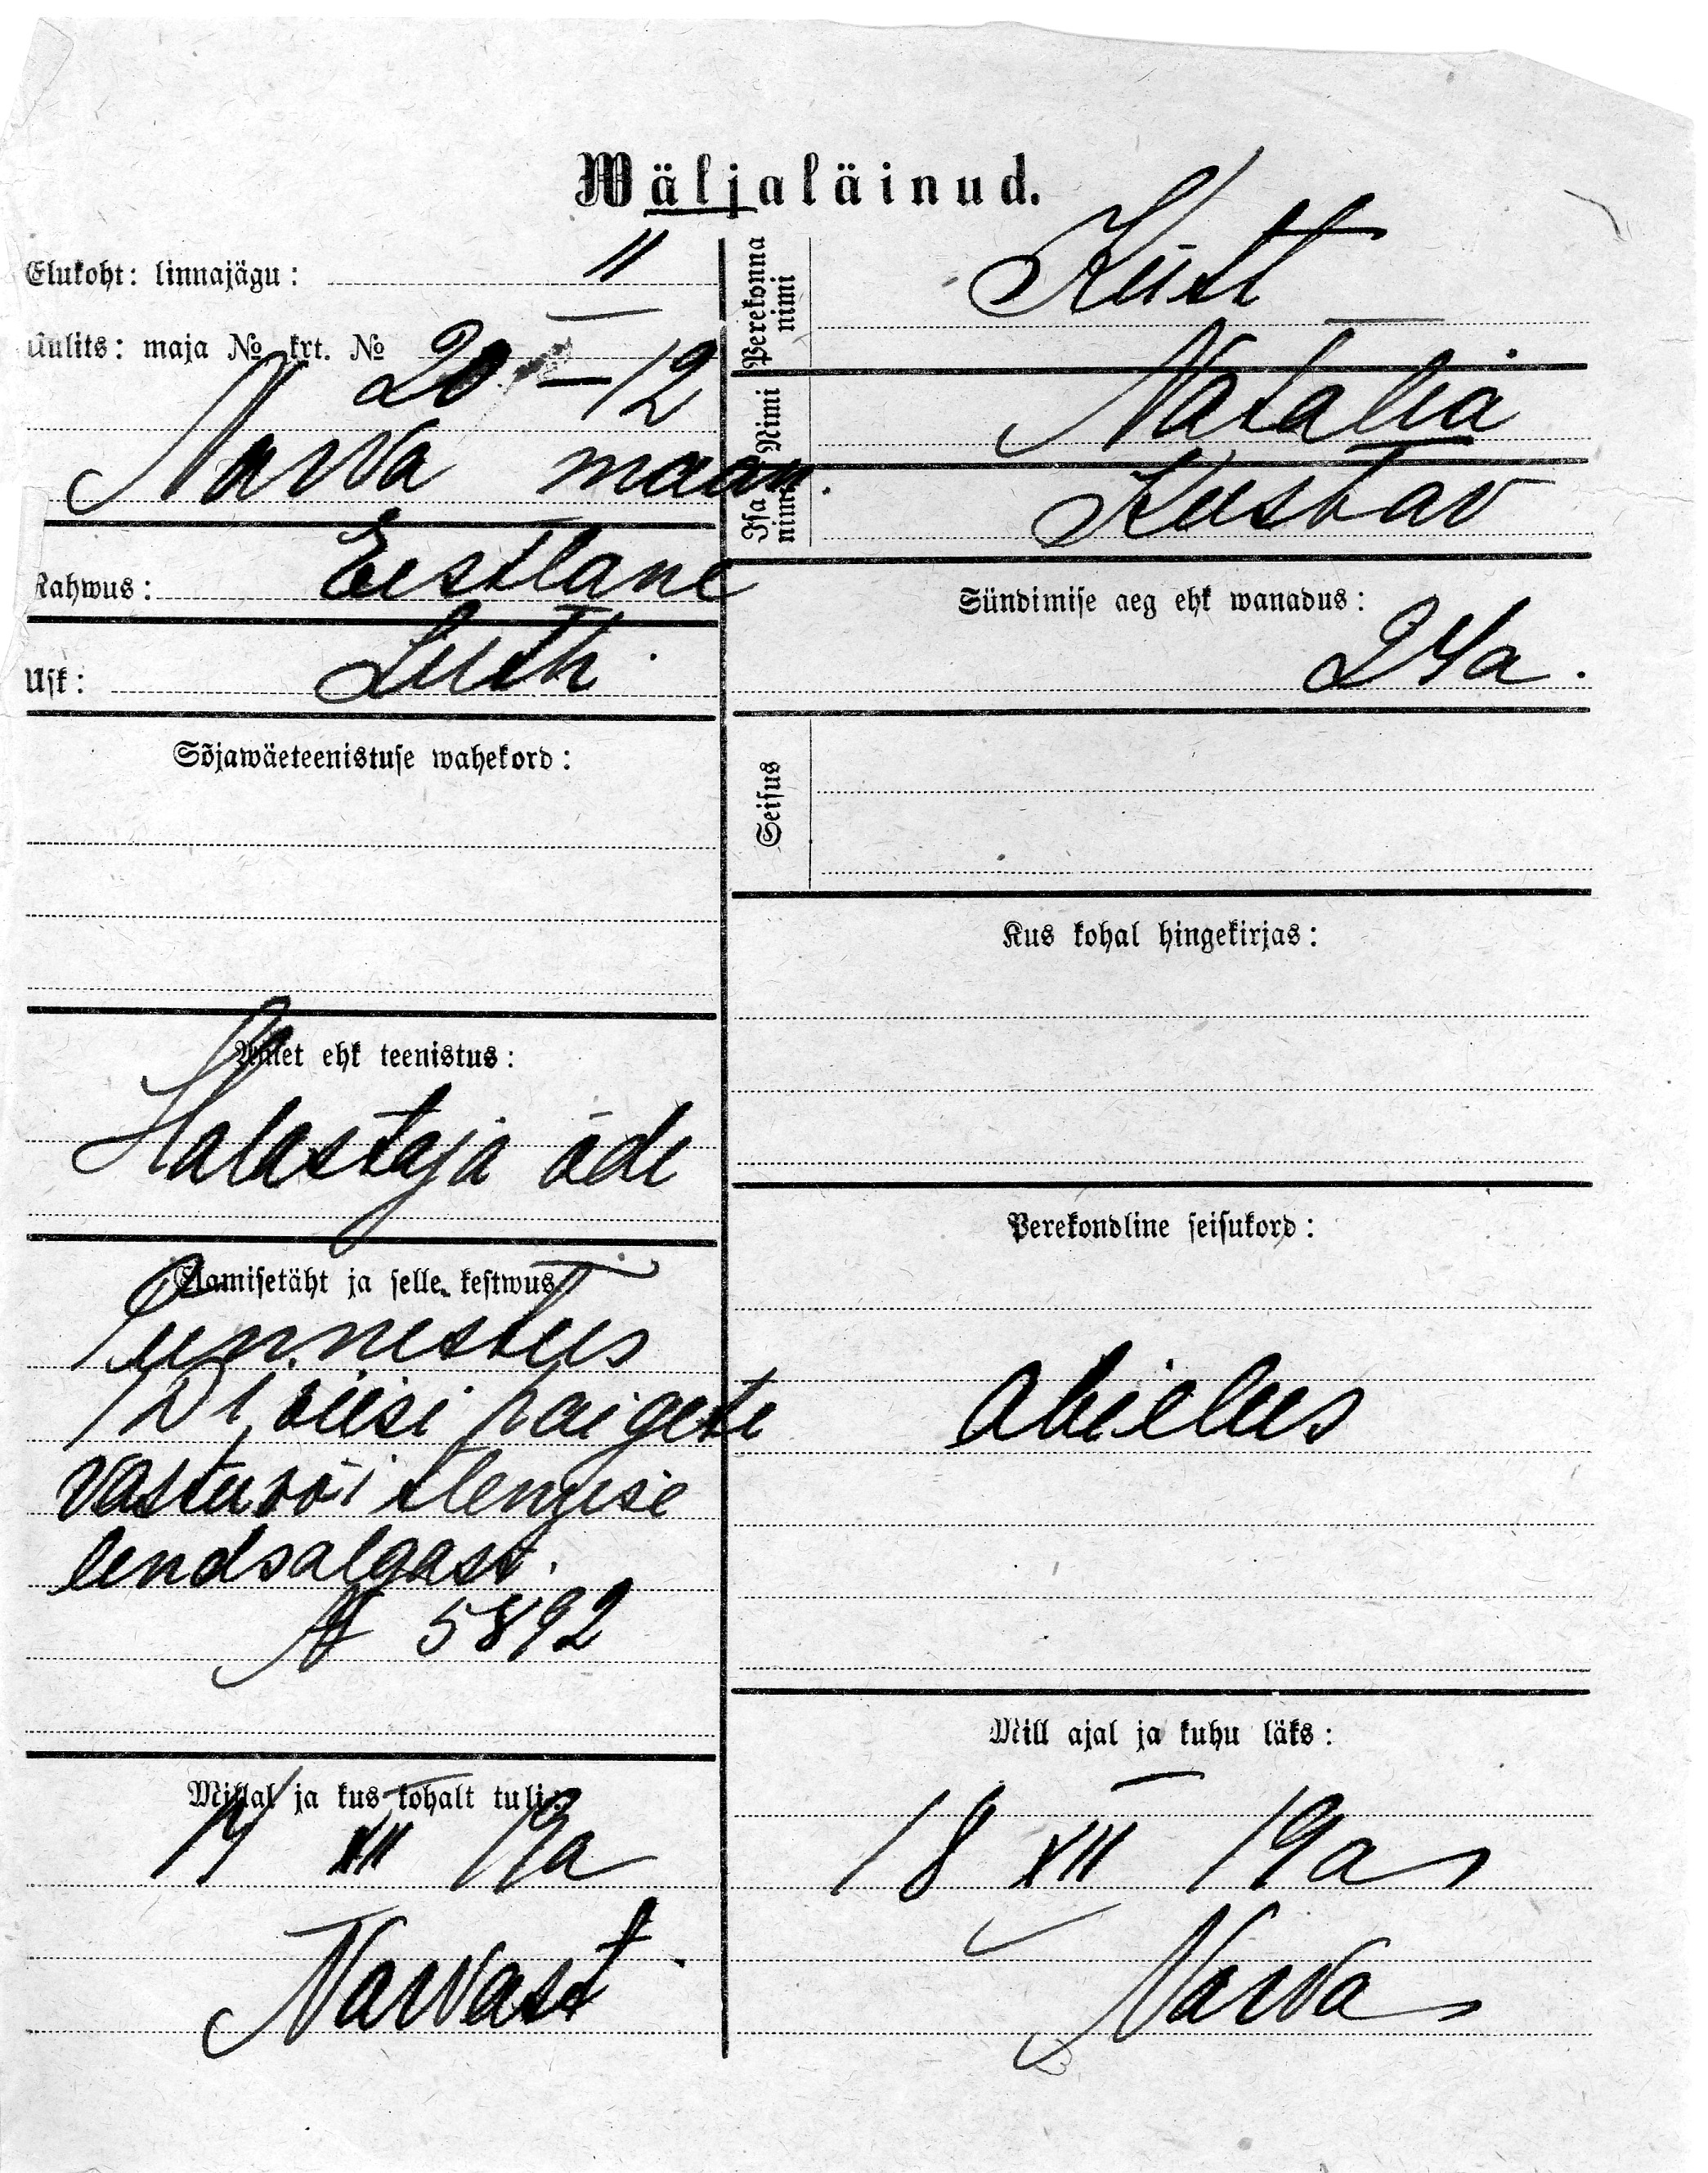 Wäljaläinud.
Elukoht: linnajägu: II
Uulits: maja № krt. №
20 — 12
Narva maan.
Rahwus: Eestlane
Usk: Luth.
Sõjawäeteenistuse wahekord:
Amet ehk teenistus:
Halastaja õde
Elamisetäht ja selle kestwus:
Tunnistus
1 Diviisi haigete
vastuvõtlengise
lendsalgast.
№ 5892
Millal ja kus kohalt tuli:
14 XII 19a
Narvast
Perekonna nimi
Küst
Nimi
Natalia
Isa nimi
Kustav
Sündimise aeg ehk wanadus:
24a.
Seisus
Kus kohal hingekirjas:
Perekondline seisukord:
abielus
Mill ajal ja kuhu läks:
18 XII 19a
Narva